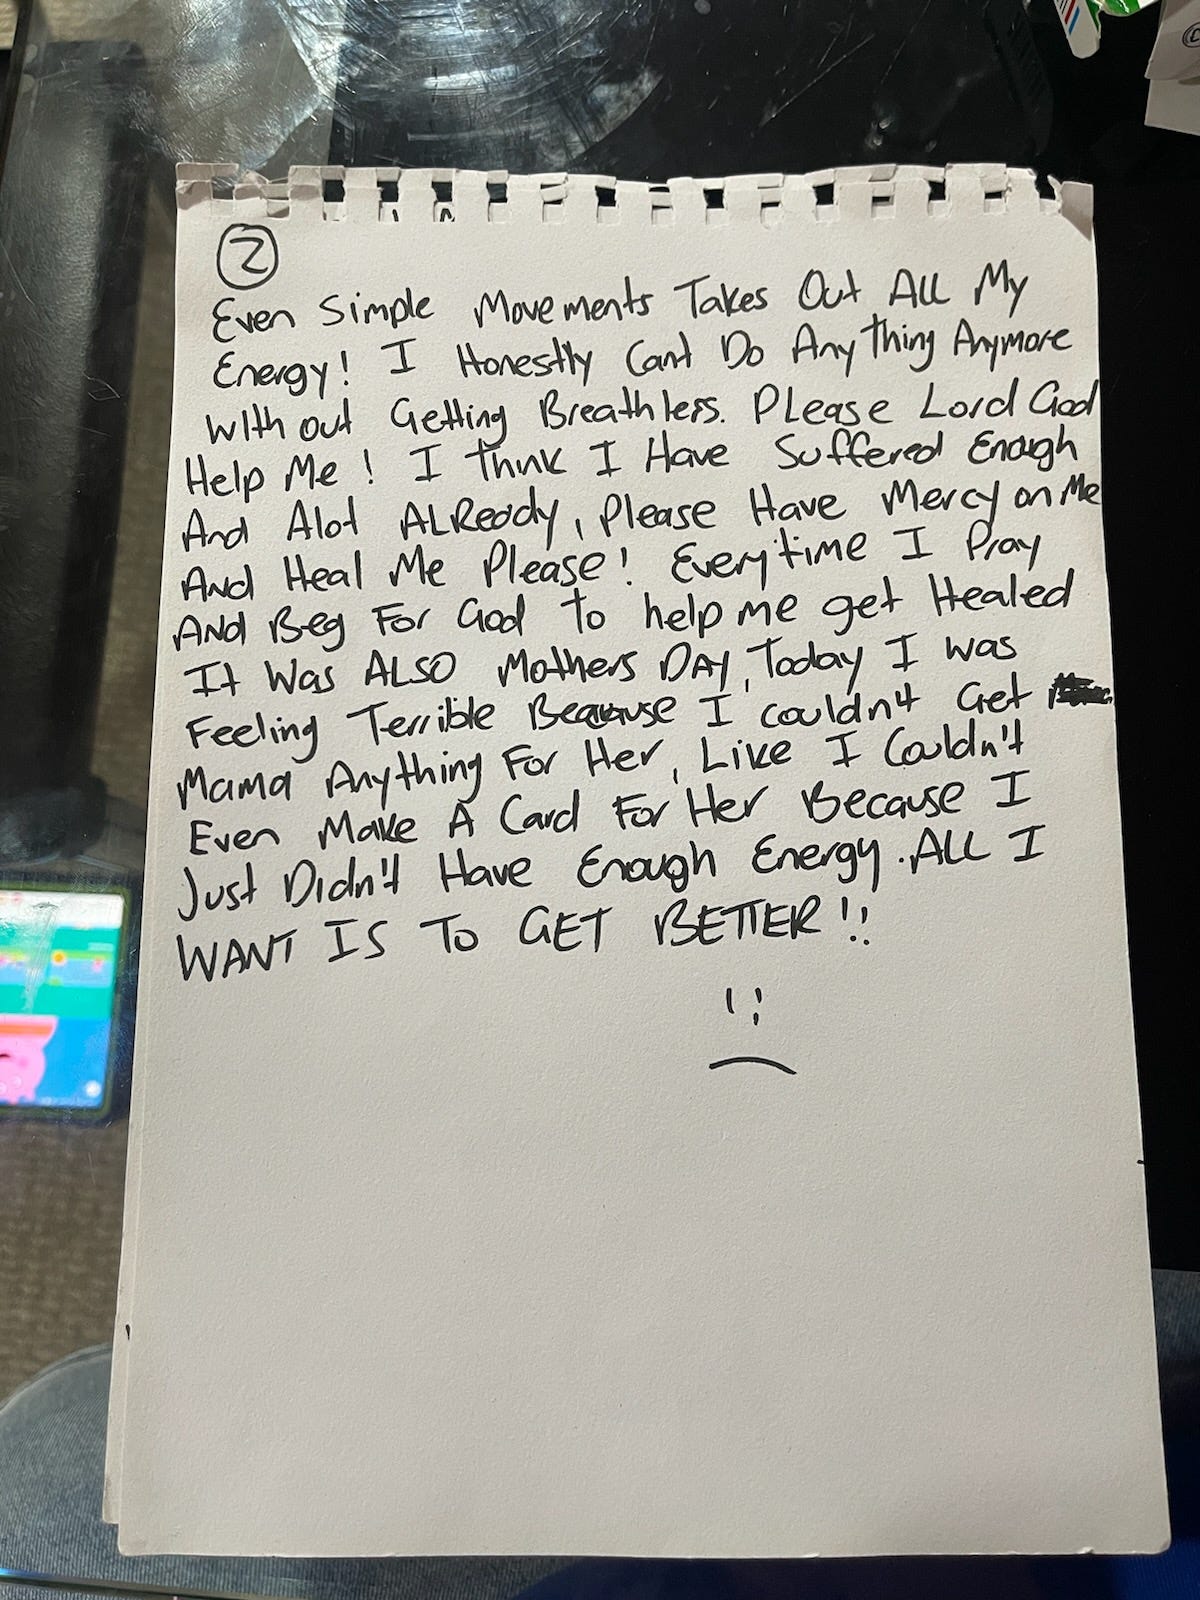 2
Even Simple Movements Takes Out All My
Energy! I Honestly Cant Do Any Thing Anymore
With out Getting Breathless. Please Lord God
Help Me! I think I Have Suffered Enough
And Alot ALReady, Please Have Mercy on Me
And Heal Me Please! Everytime I Pray
And Beg For God To help me get Healed
It Was ALSO Mothers DAY, Today I was
Feeling Terrible Because I couldn't Get
Mama Anything For Her, Like I Couldn't
Even Make A Card For Her Because I
Just Didn't Have Enough Energy. ALL I
WANT IS TO GET BETTER!!